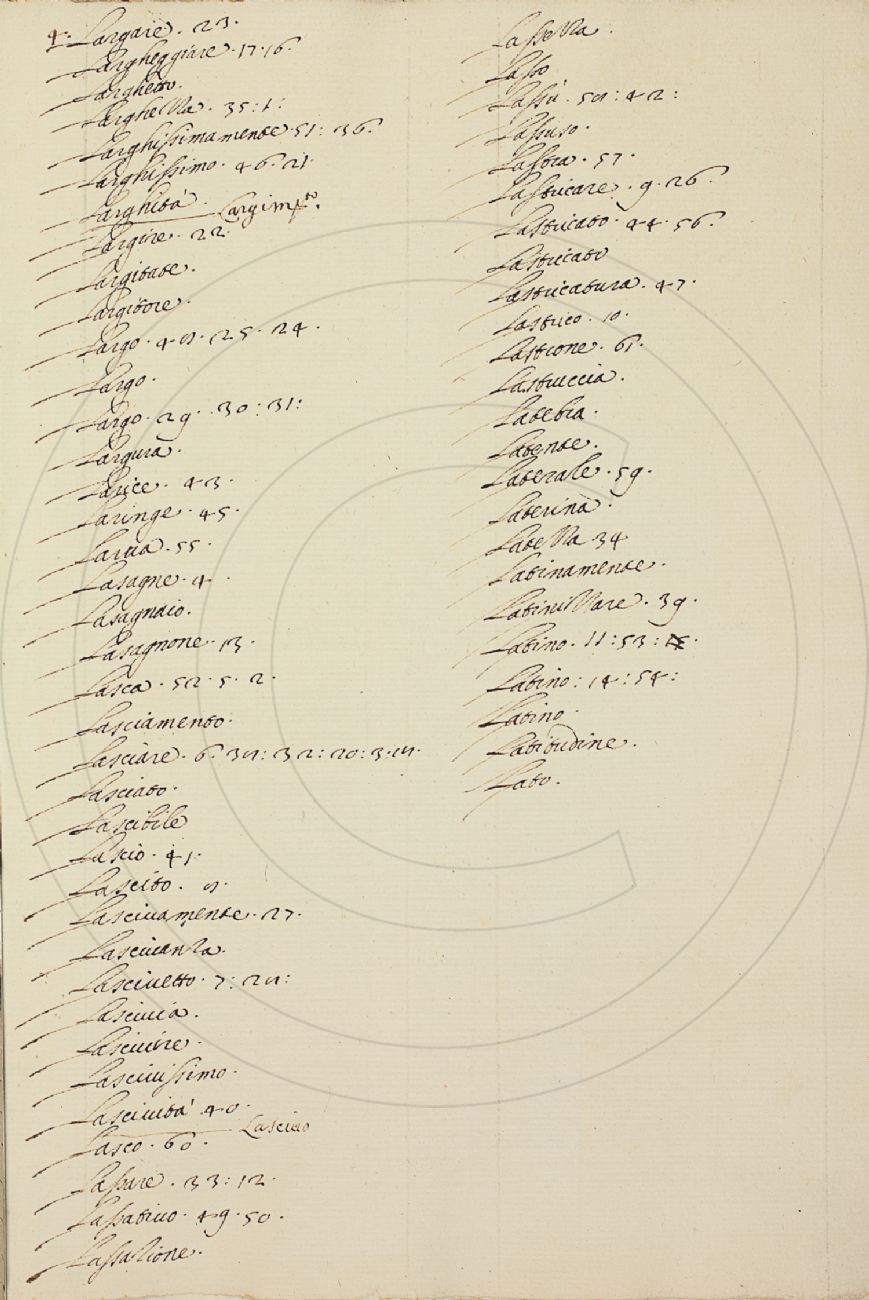 4. Largare. 23.
Largheggiare. 17. 16.
Larghetto.
Larghezza. 35: 1:
Larghissimamente. 51: 36.
Larghissimo. 46. 21.
Larghità.
Largim.to.
Largire. 22.
Largitate.
Largitore.
Largo. 25. 24.
Largo.
Largo. 29. 30: 31:
Largura.
Larice. 43.
Laringe. 45.
Larua. 55.
Lasagne. 4.
Lasagnaio.
Lasagnone. 13.
Lasca. 52. 5. 2.
Lasciamento.
Lasciare. 6. 32: 20:
Lasciato.
Lascibile
Lascio. 41.
Lascito.
Lasciuamente. 27.
Lasciuanza.
Lasciuetto. 7:
Lasciuia.
Lasciuire.
Lasciuissimo.
Lasciuità. 40.
Lasciuo
Lasco. 60.
Lassare. 33: 12.
Lassatiuo. 49. 50.
Lassazione.
Lassezza.
Lasso
Lassù. 42:
Lassuso.
Lastra. 57.
Lastricare. 9. 26.
Lastricato. 44. 56.
Lastricato
Lastricatura. 47.
Lastrico. 10.
Lastrone. 61.
Lastruccia.
Latebra.
Latente.
Laterale. 59.
Laterina.
Latezza. 34
Latinamente.
Latinizzare. 39.
Latino. 11: 53:
Latino: 14: 54:
Latino.
Latitudine.
Lato.